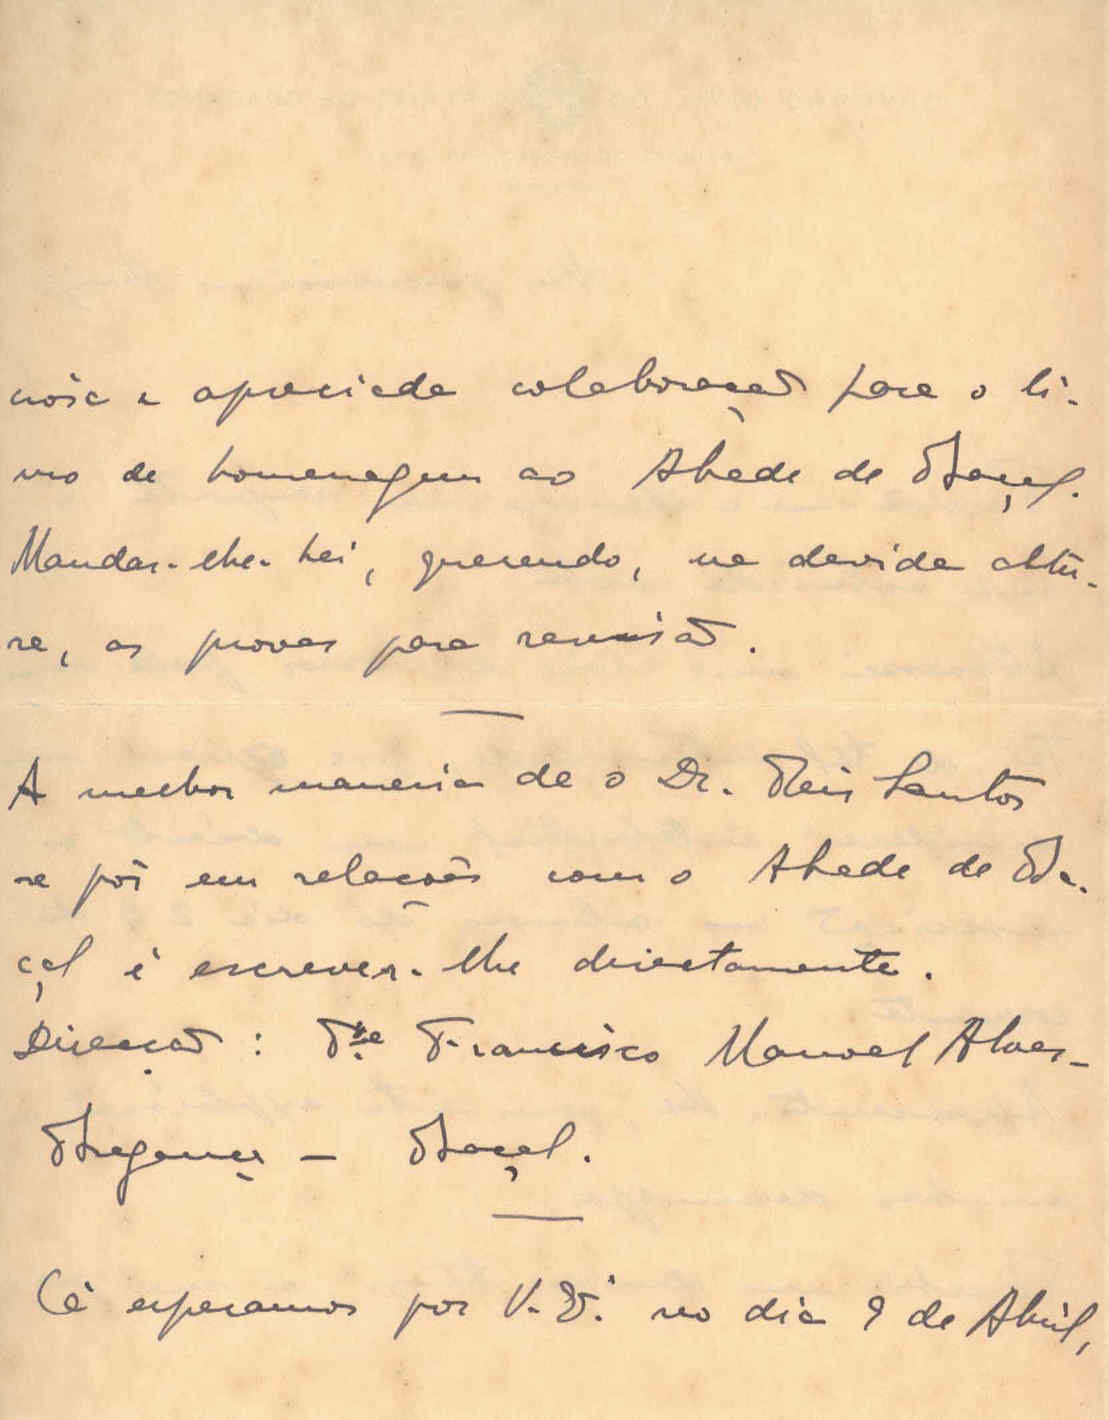 ciosa e apreciada colaboração para o li-
vro de homenagem ao Abade de Baçal.
Mandar-lhe-hei, querendo, na devida altu-
ra, as provas para revisão.
A melhor maneira de o Dr. Reis Santos
se pôr em relações com o Abade de Ba-
çal é escrever-lhe directamente.
Direcção: P.re Francisco Manoel Alves-
Bragança - Baçal.
Cá esperamos por V. Ex.ª no dia 9 de Abril,